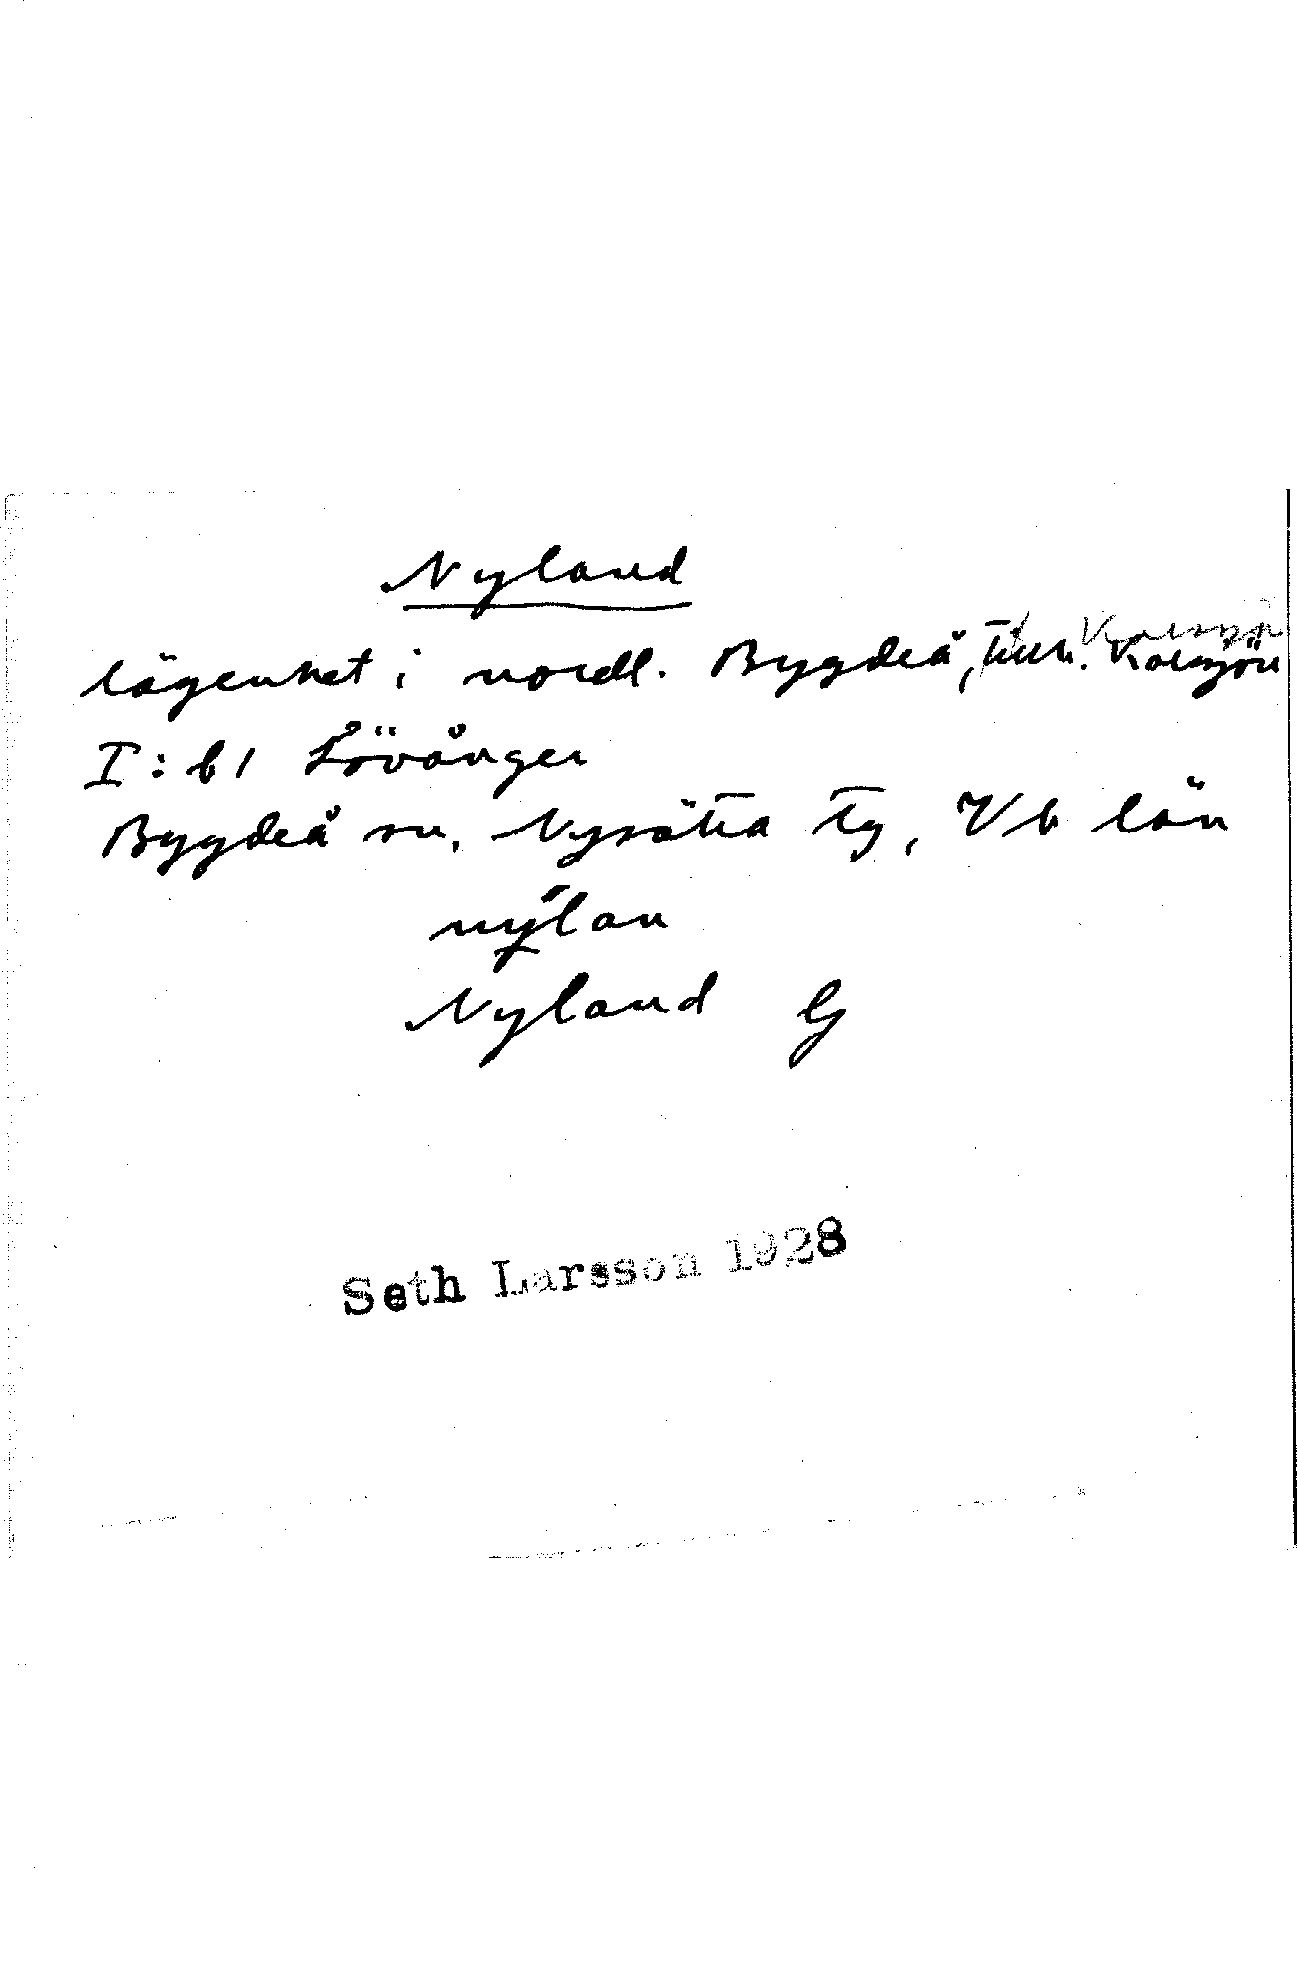 Nyland
lägenhet i nordl. Bygdeå, tillh. Kalvsjön
I:b1 Lövånger
Bygdeå sn, Nysätra tg, Vb län
nýlan
Nyland G
Seth Larsson 1928